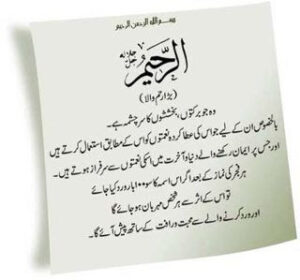 بسم اللہ الرحمن الرحیم
الرَّحِيْمُ جل جلالہ
(بڑا رحم والا)
وہ جو برکتوں، بخششوں کا سرچشمہ ہے۔
بالخصوص ان کے لیے جو اس کی عطا کردہ نعمتوں کو اس کے مطابق استعمال کرتے ہیں
اور جس پر ایمان رکھنے والے دنیا و آخرت میں اسکی نعمتوں سے سرفراز ہوتے ہیں۔
ہر فجر کی نماز کے بعد اگر اس اسم کا سو ۱۰۰ بار ورد کیا جائے
تو اس کے اثر سے ہر شخص مہربان ہو جائے گا
اور ورد کرنے والے سے محبت و رافت کے ساتھ پیش آئے گا۔